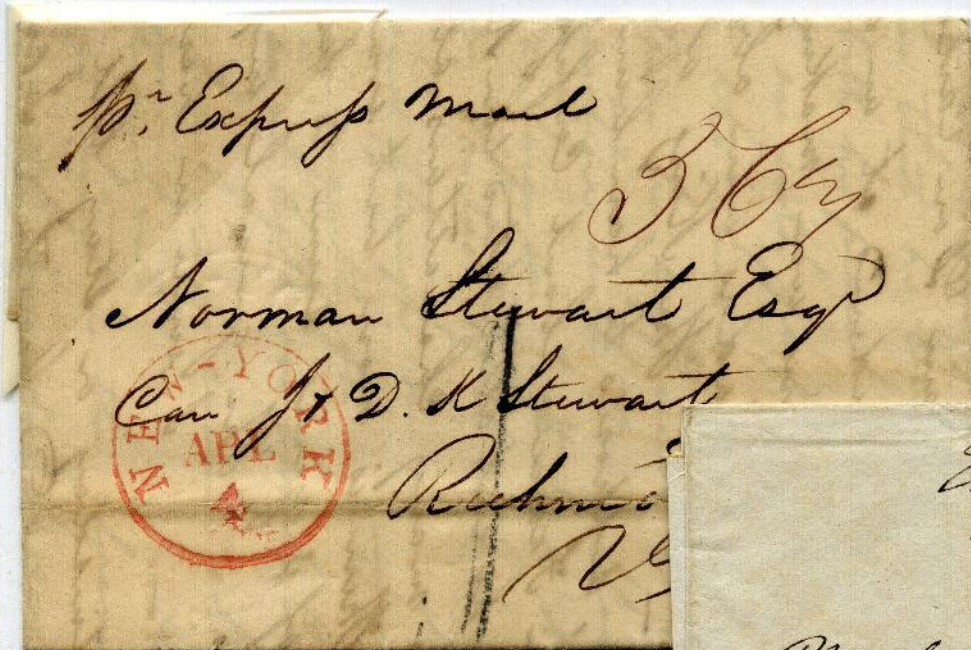 pr. Express Mail
Norman Stewart Esqr
Care J & D. K Stewart
Richmo
Va
NEW-YORK
APL
4